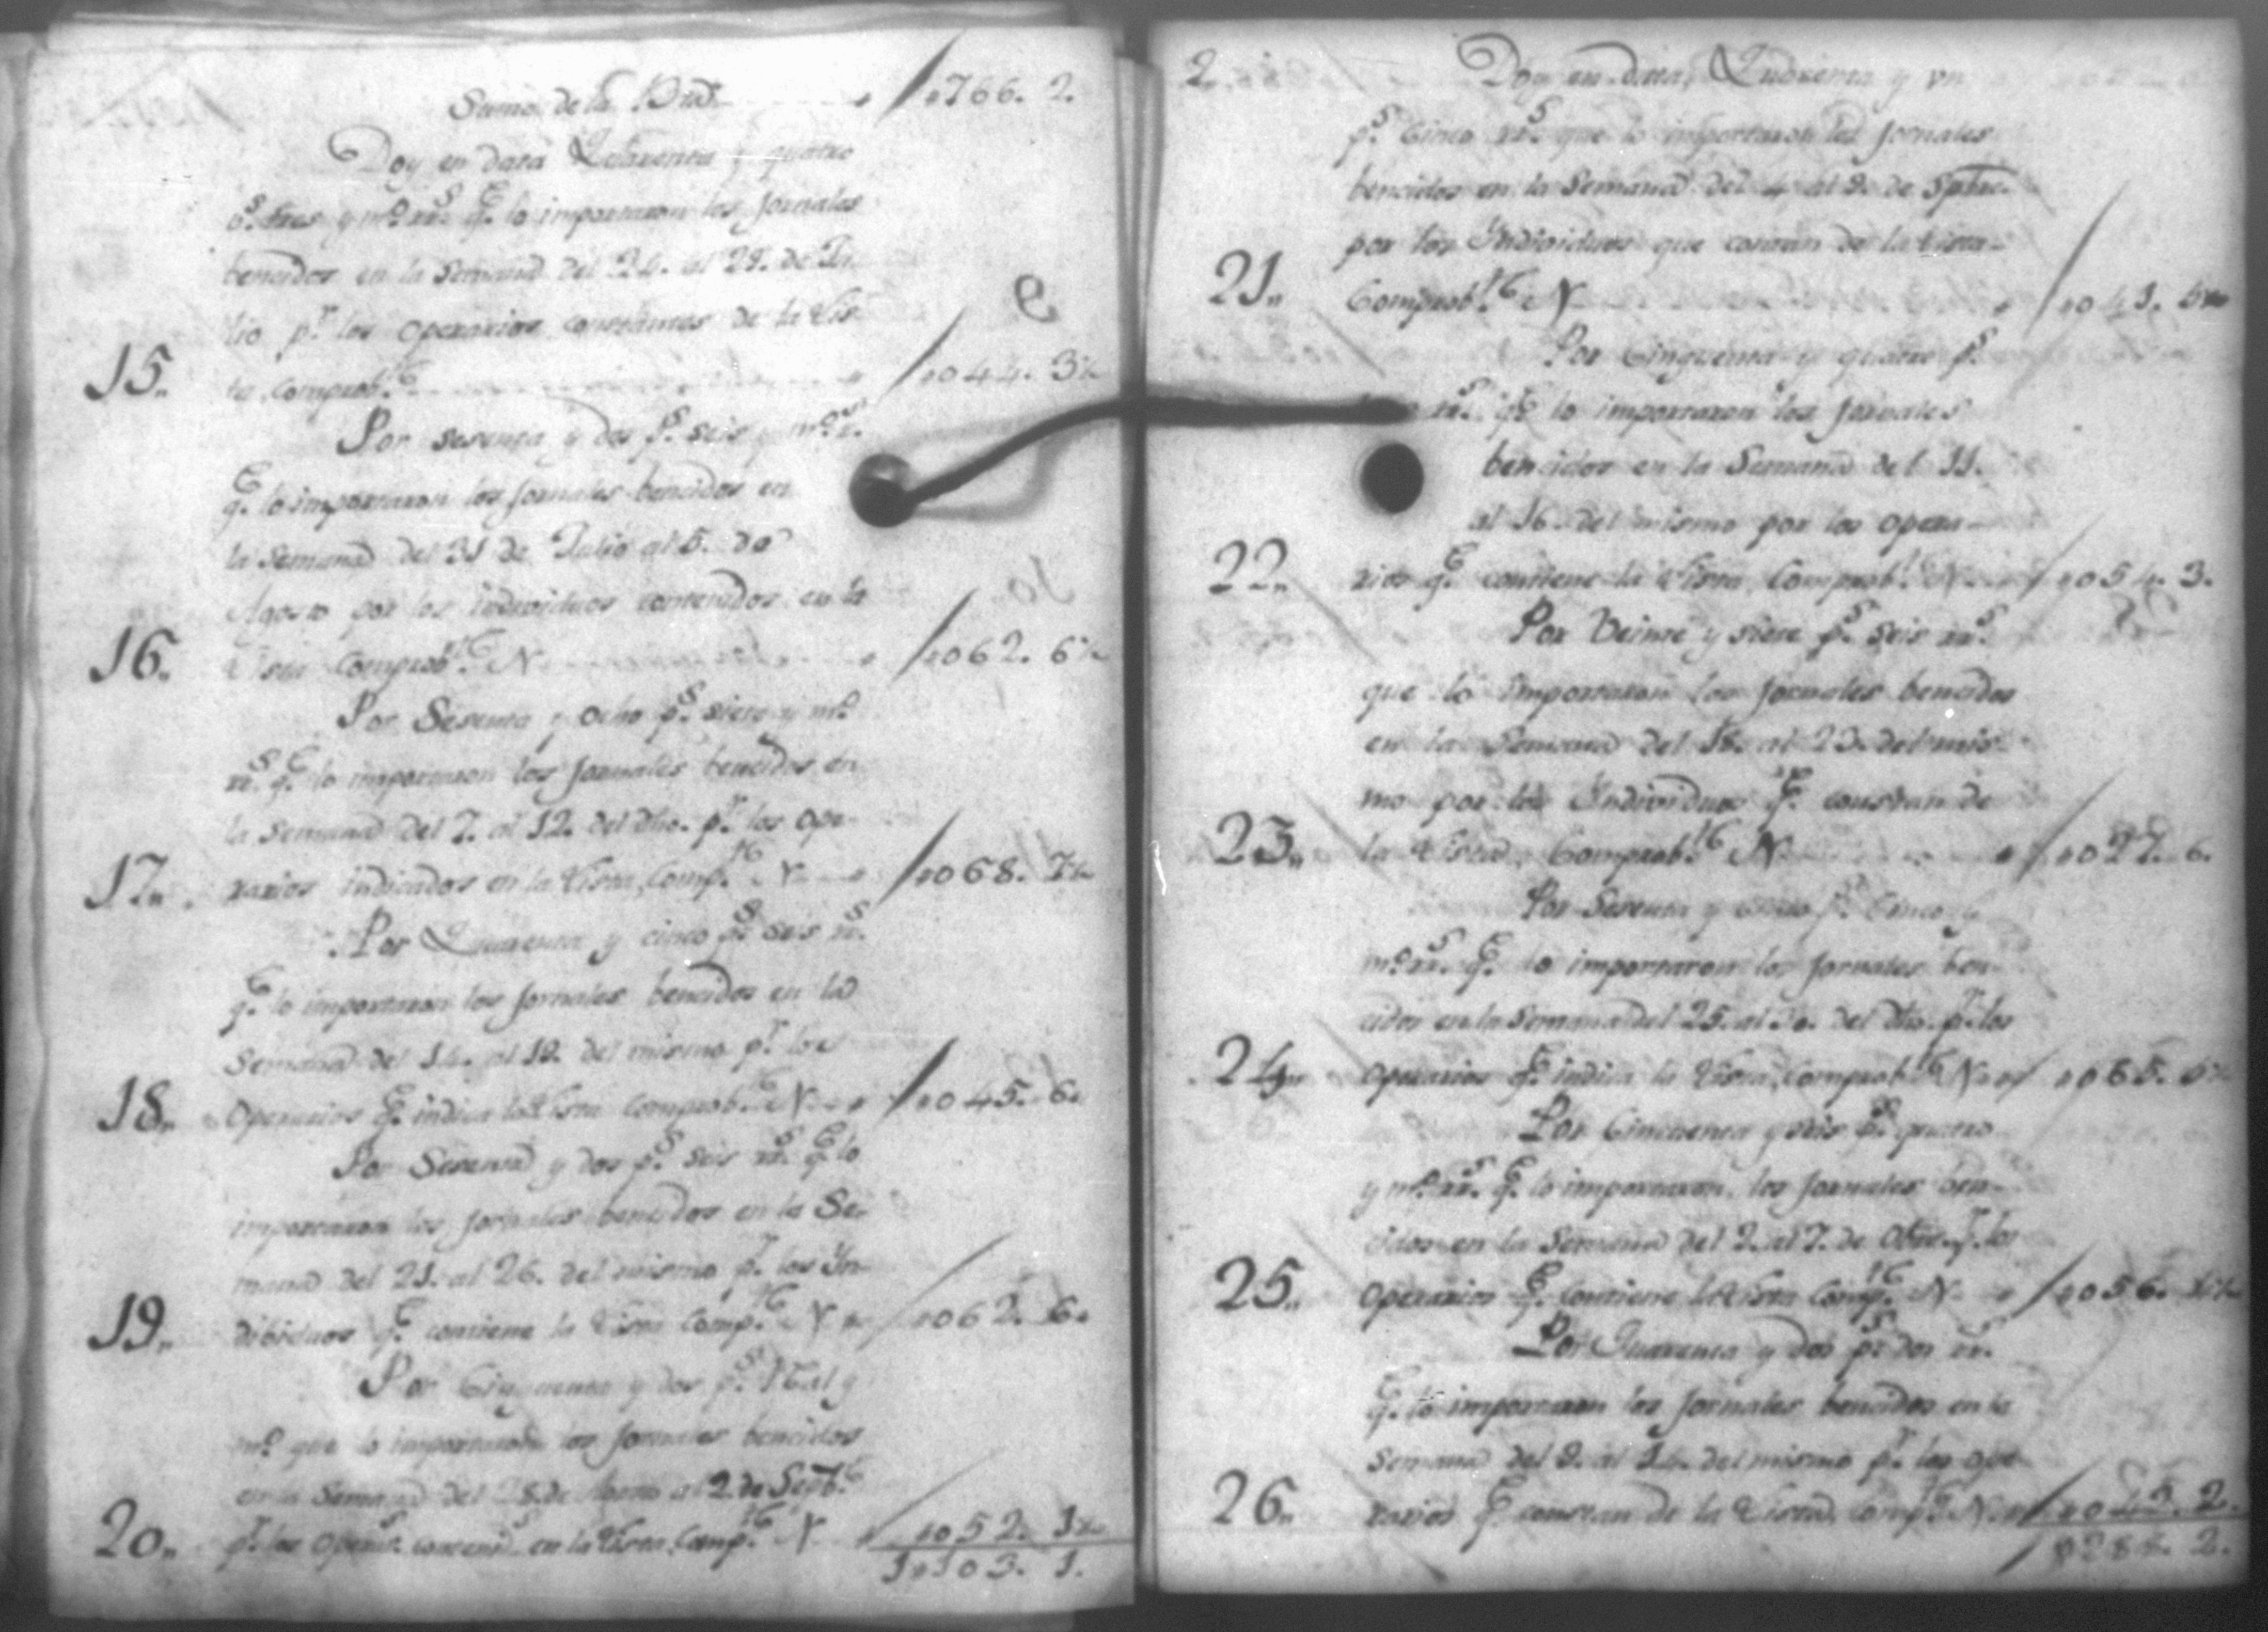 Suma de la Bta. 766. 2.
Doy en data Quarenta y quatro
p.s tres y m.o rr.s q.e lo importaron los jornales
bencidos en la Semana del 24. al 29. de Ju-
lio p.r los operarios constantes de la Lis-
15. ta, Comprob.te 044. 3½
Por sesenta y dos p.s seis y m.o r.s
q.e lo importaron los jornales bencidos en
la Semana del 31 de Julio al 5. de
Agosto por los individuos contenidos en la
16. Lista Comprob.te N 062. 6½
Por Sesenta y ocho p.s siete y m.o
rr.s q.e lo importaron los jornales bencidos en
la Semana del 7. al 12. del dho. p.r los ope-
17. rarios indicados en la Lista, Comp.te N 068. 7½
Por Quarenta y cinco p.s seis rr.s
q.e lo importaron los jornales bencidos en la
Semana del 14. al 19. del mismo p.r los
18. Operarios q.e indica la Lista Comprob.te N 045. 6.
Por Sesenta y dos p.s seis rr.s q.e lo
importaron los jornales bencidos en la Se-
mana del 21. al 26. del mismo p.r los Yn-
19. dibiduos q.e contiene la Lista Comp.te N 062. 6.
Por Cinquenta y dos p.s 1 Real y
m.o que lo importaron los jornales bencidos
en la Semana del 28. de Agosto al 2. de Sept.e
20. p.r los Operar.s contenid.s en la Lista, Comp.te N 052. 1½
1103. 1.
2. Doy en data, Quarenta y un
p.s Cinco rr.s que lo importaron los jornales
bencidos en la Semana del 4. al 9. de Sptre.
por los Yndividuos que constan de la Lista
21. Comprob.te N 041. 5
Por Cinquenta y quatro p.s
rr.s q.e lo importaron los jornales
bencidos en la Semana del 11.
al 16. del mismo por los opera-
22. rios q.e contiene la Lista Comprob.te N 054. 3.
Por Veinte y siete p.s seis rr.s
que lo importaron los jornales bencidos
en la Semana del 18. al 23. del mis-
mo por los Yndividuos q.e constan de
23. la Lista, Comprob.te N 027. 6.
Por Sesenta y cinco p.s Cinco y
m.o rr.s q.e lo importaron los jornales ben-
cidos en la Semana del 25. al 30. del dho. p.r los
24. Operarios q.e indica la Lista, Comprob.te N 065. 5½
Por Cincuenta y seis p.s quatro
y m.o rr.s q.e lo importaron los jornales ben-
cidos en la Semana del 2. al 7. de Obre. p.r los
25. Operarios q.e contiene la Lista Comp.te N 056. 4½
Por Quarenta y dos p.s dos rr.s
q.e lo importaron los jornales bencidos en la
Semana del 9. al 14. del mismo p.r los ope-
26. rarios q.e constan de la Lista, Comp.te N 042. 2.
288. 2.